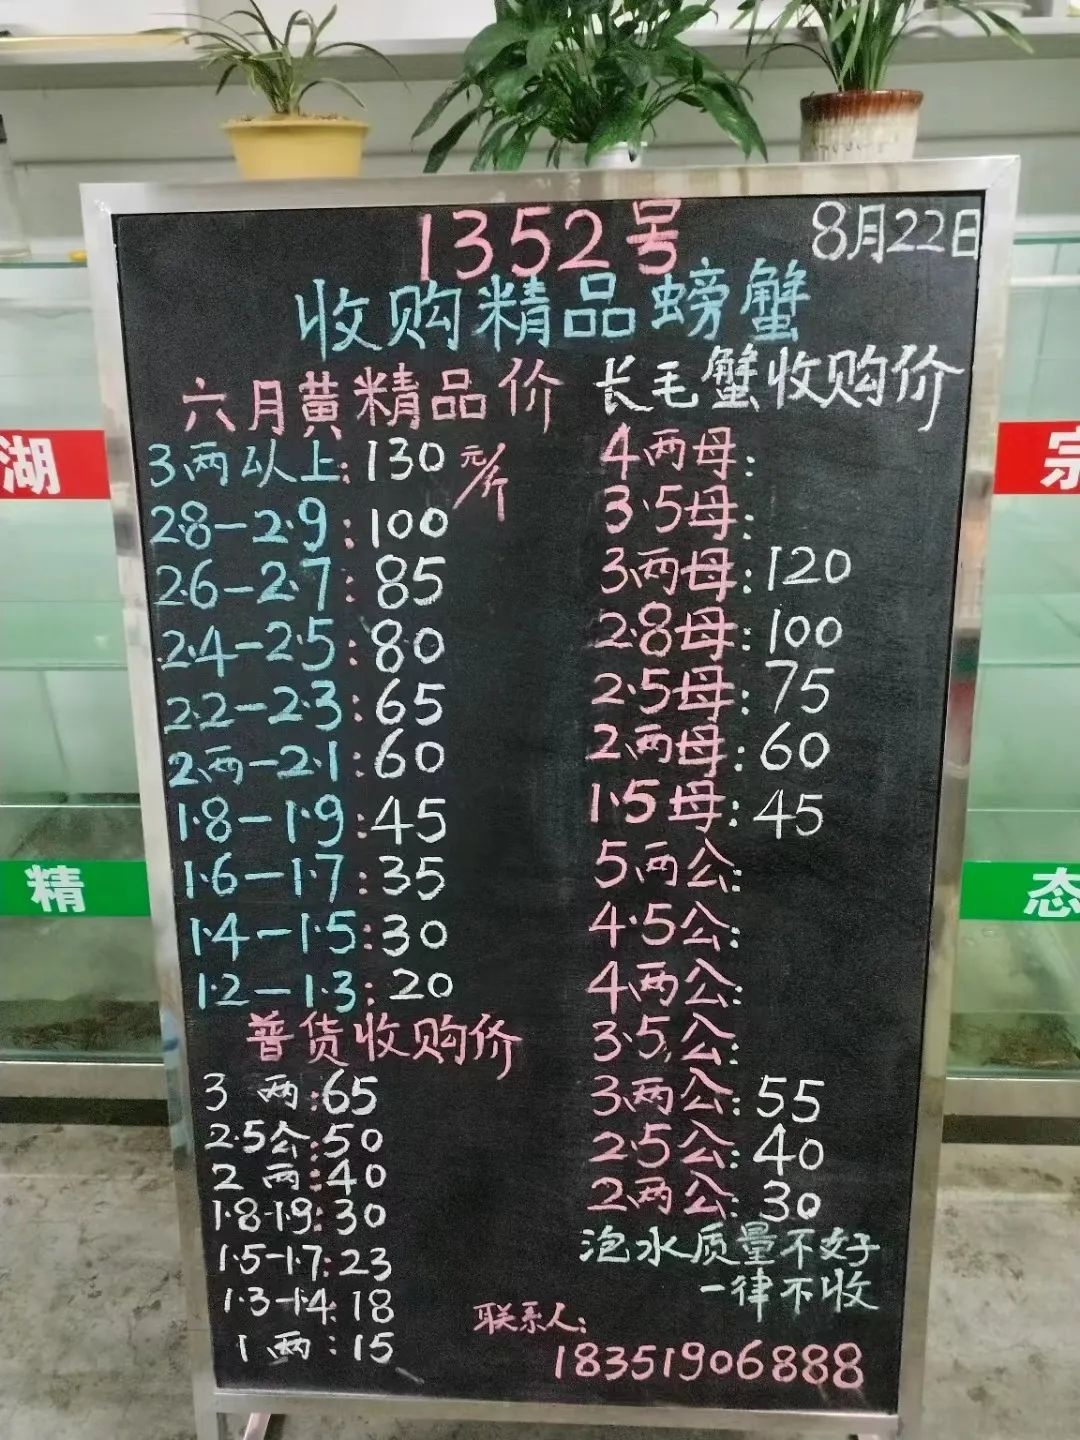 1352号
8月22日
收购精品螃蟹
六月黄精品价
3两以上:130元/斤
2.8-2.9:100
2.6-2.7:85
2.4-2.5:80
2.2-2.3:65
2两-2.1:60
1.8-1.9:45
1.6-1.7:35
1.4-1.5:30
1.2-1.3:20
普货收购价
3 两:65
2.5公:50
2 两:40
1.8-1.9:30
1.5-1.7:23
1.3-1.4:18
1两:15
长毛蟹收购价
4两母:
3.5母:
3两母:120
2.8母:100
2.5母:75
2两母:60
1.5母:45
5两公:
4.5公:
4两公:
3.5公:
3两公:55
2.5公:40
2两公:30
泡水质量不好
一律不收
联系人:
18351906888
湖
精
宗
态